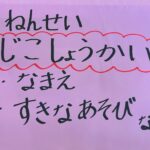 ねんせい
じこしょうかい
・なまえ
・すきなあそび
な